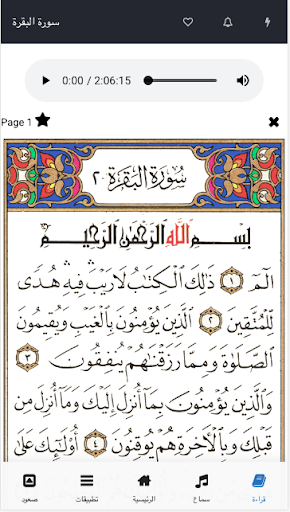 سورة البقرة
0:00 / 2:06:15
Page 1
سُورَةُ البَقَرَةِ ٢
بِسْمِ اللَّهِ الرَّحْمَٰنِ الرَّحِيمِ
الٓمٓ ١ ذَٰلِكَ الْكِتَٰبُ لَا رَيْبَ فِيهِ هُدًى
لِّلْمُتَّقِينَ ٢ الَّذِينَ يُؤْمِنُونَ بِالْغَيْبِ وَيُقِيمُونَ
الصَّلَوٰةَ وَمِمَّا رَزَقْنَٰهُمْ يُنفِقُونَ ٣
وَالَّذِينَ يُؤْمِنُونَ بِمَا أُنزِلَ إِلَيْكَ وَمَا أُنزِلَ مِن
قَبْلِكَ وَبِالْآخِرَةِ هُمْ يُوقِنُونَ ٤ أُولَٰئِكَ عَلَىٰ
قراءة
سماع
الرئيسية
تطبيقات
صعود